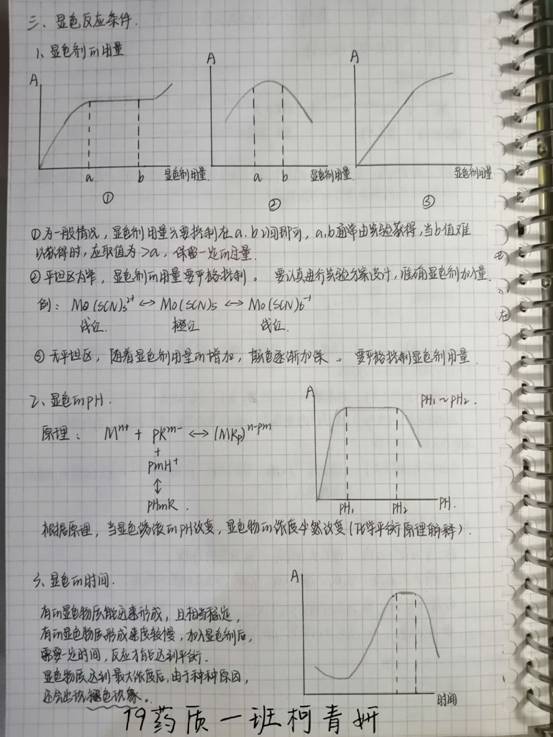 三、显色反应条件.
1、显色剂的用量
A
A
A
a
b
显色剂用量
a
b
显色剂用量
显色剂用量
①
②
③
①为一般情况，显色剂用量只要控制在a，b之间即可，a，b通常由实验获得，当b值难
以获得时，应取值为>a，保留一定的过量.
②平坦区为窄，显色剂的用量要严格控制。要认真进行实验方案设计，准确显色剂加入量
例：Mo(SCN)3²⁺ ↔ Mo(SCN)5 ↔ Mo(SCN)6⁻¹
浅红 橙红 浅红
③无平坦区，随着显色剂用量的增加，颜色逐渐加深。要严格控制显色剂用量
2、显色的pH.
A
PH₁～PH₂.
原理：Mⁿ⁺ + PKᵐ⁻ ↔ (MKp)ⁿ⁻ᵖᵐ
+
PmH⁺
↕
PHmR.
PH₁
PH₂
PH.
根据原理，当显色溶液的pH改变，显色物的浓度必然改变(化学平衡原理解释).
3、显色的时间.
A
有的显色物质能迅速形成，且相当稳定，
有的显色物质形成速度较慢，加入显色剂后，
需要一定时间，反应才能达到平衡.
显色物质达到最大浓度后，由于种种原因，
还会出现褪色现象。
时间
19药质一班柯青妍